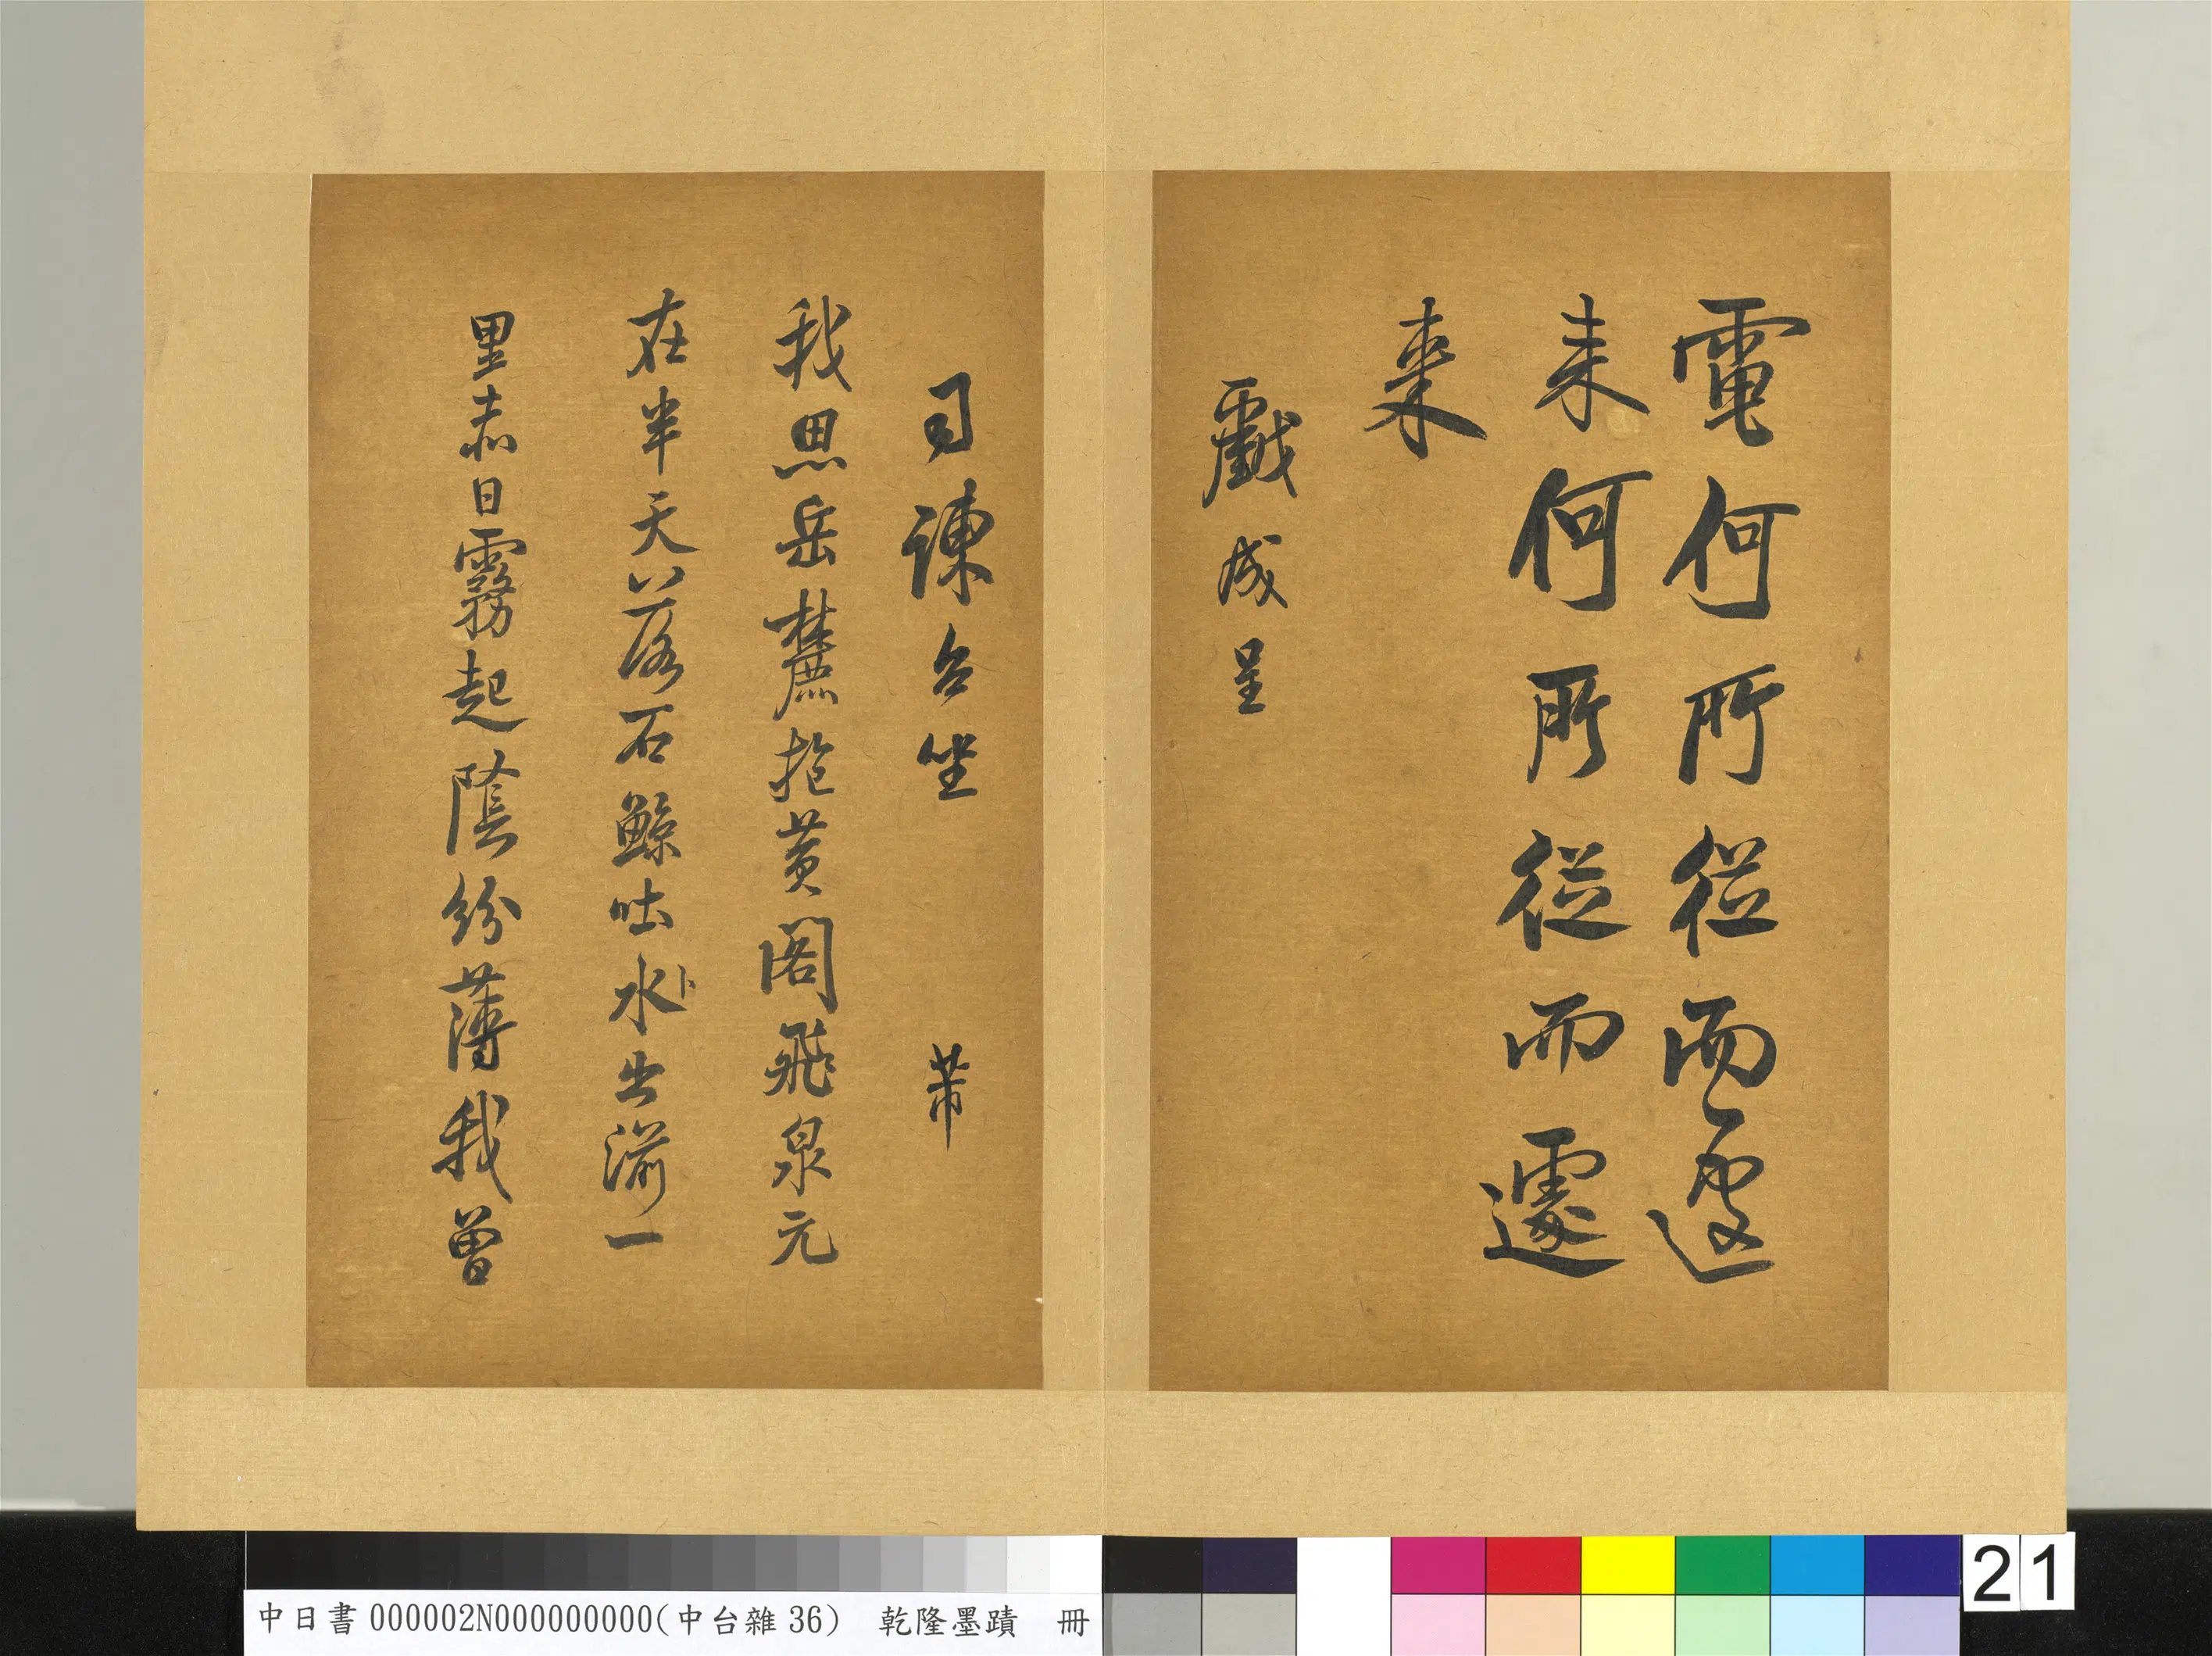 電何所從而遽
来何所從而遽
来
戲成呈
司諫台坐 芾
我思岳麓抱黄閣飛泉元
在半天落石鯨吐水出湔一
里赤日霧起陰紛薄我曾
中日書000002N000000000(中台雜36) 乾隆墨蹟 冊
21